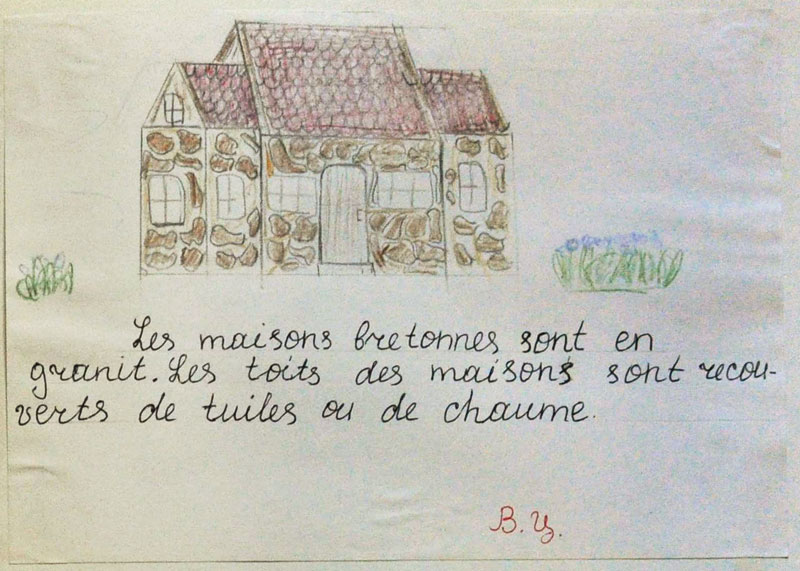 Les maisons bretonnes sont en
granit. Les toits des maisons sont recou-
verts de tuiles ou de chaume.
В. Ц.